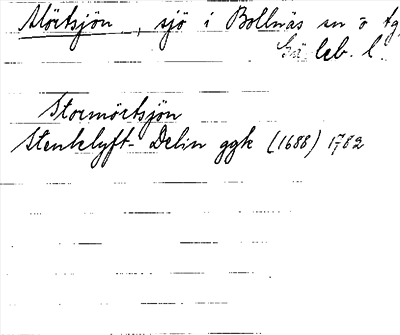 Mörtsjön, sjö i Bollnäs sn o tg,
Gä leb. l.
Stormörtsjön
Stenklyft- Delin ggk (1688) 1782